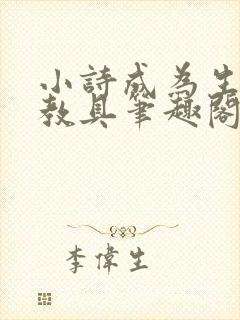 小詩成為生
教具筆趣閣
李偉生